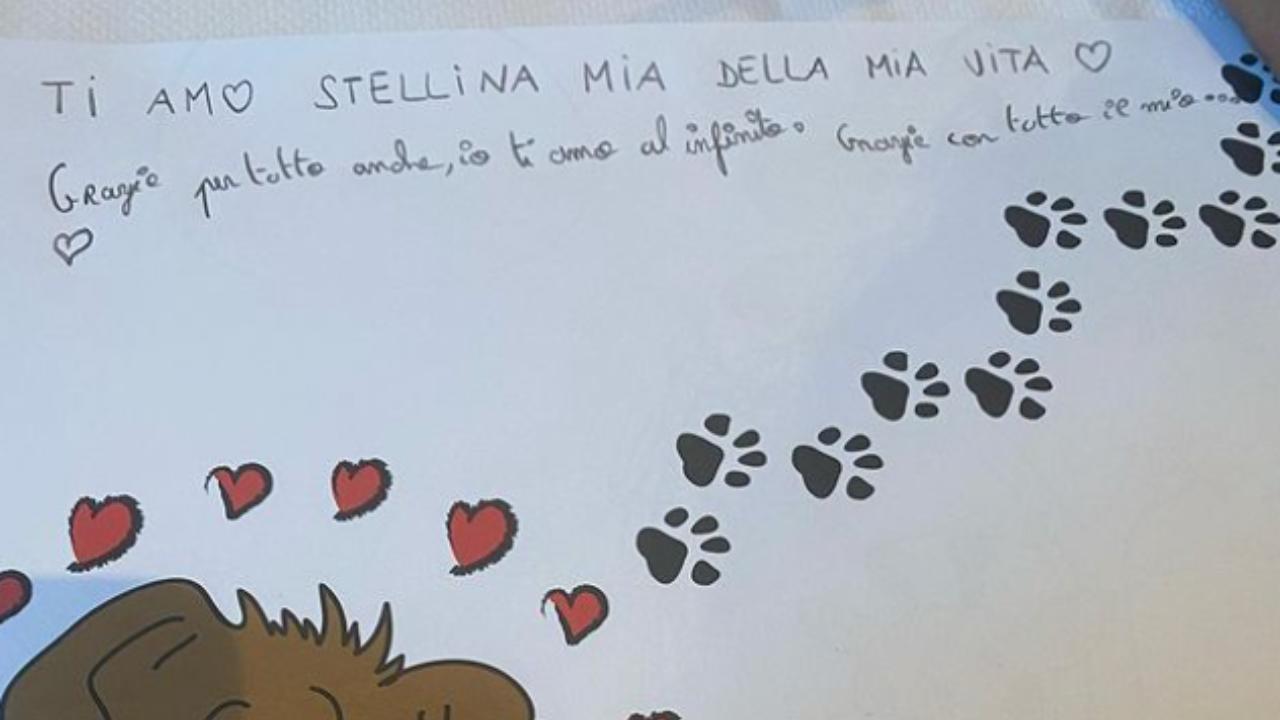 Ti AMO STELLiNA MiA DELLA MiA ViTA ♡
Grazie per tutto anche, io ti amo al infinito. Grazie con tutto il mio....
♡